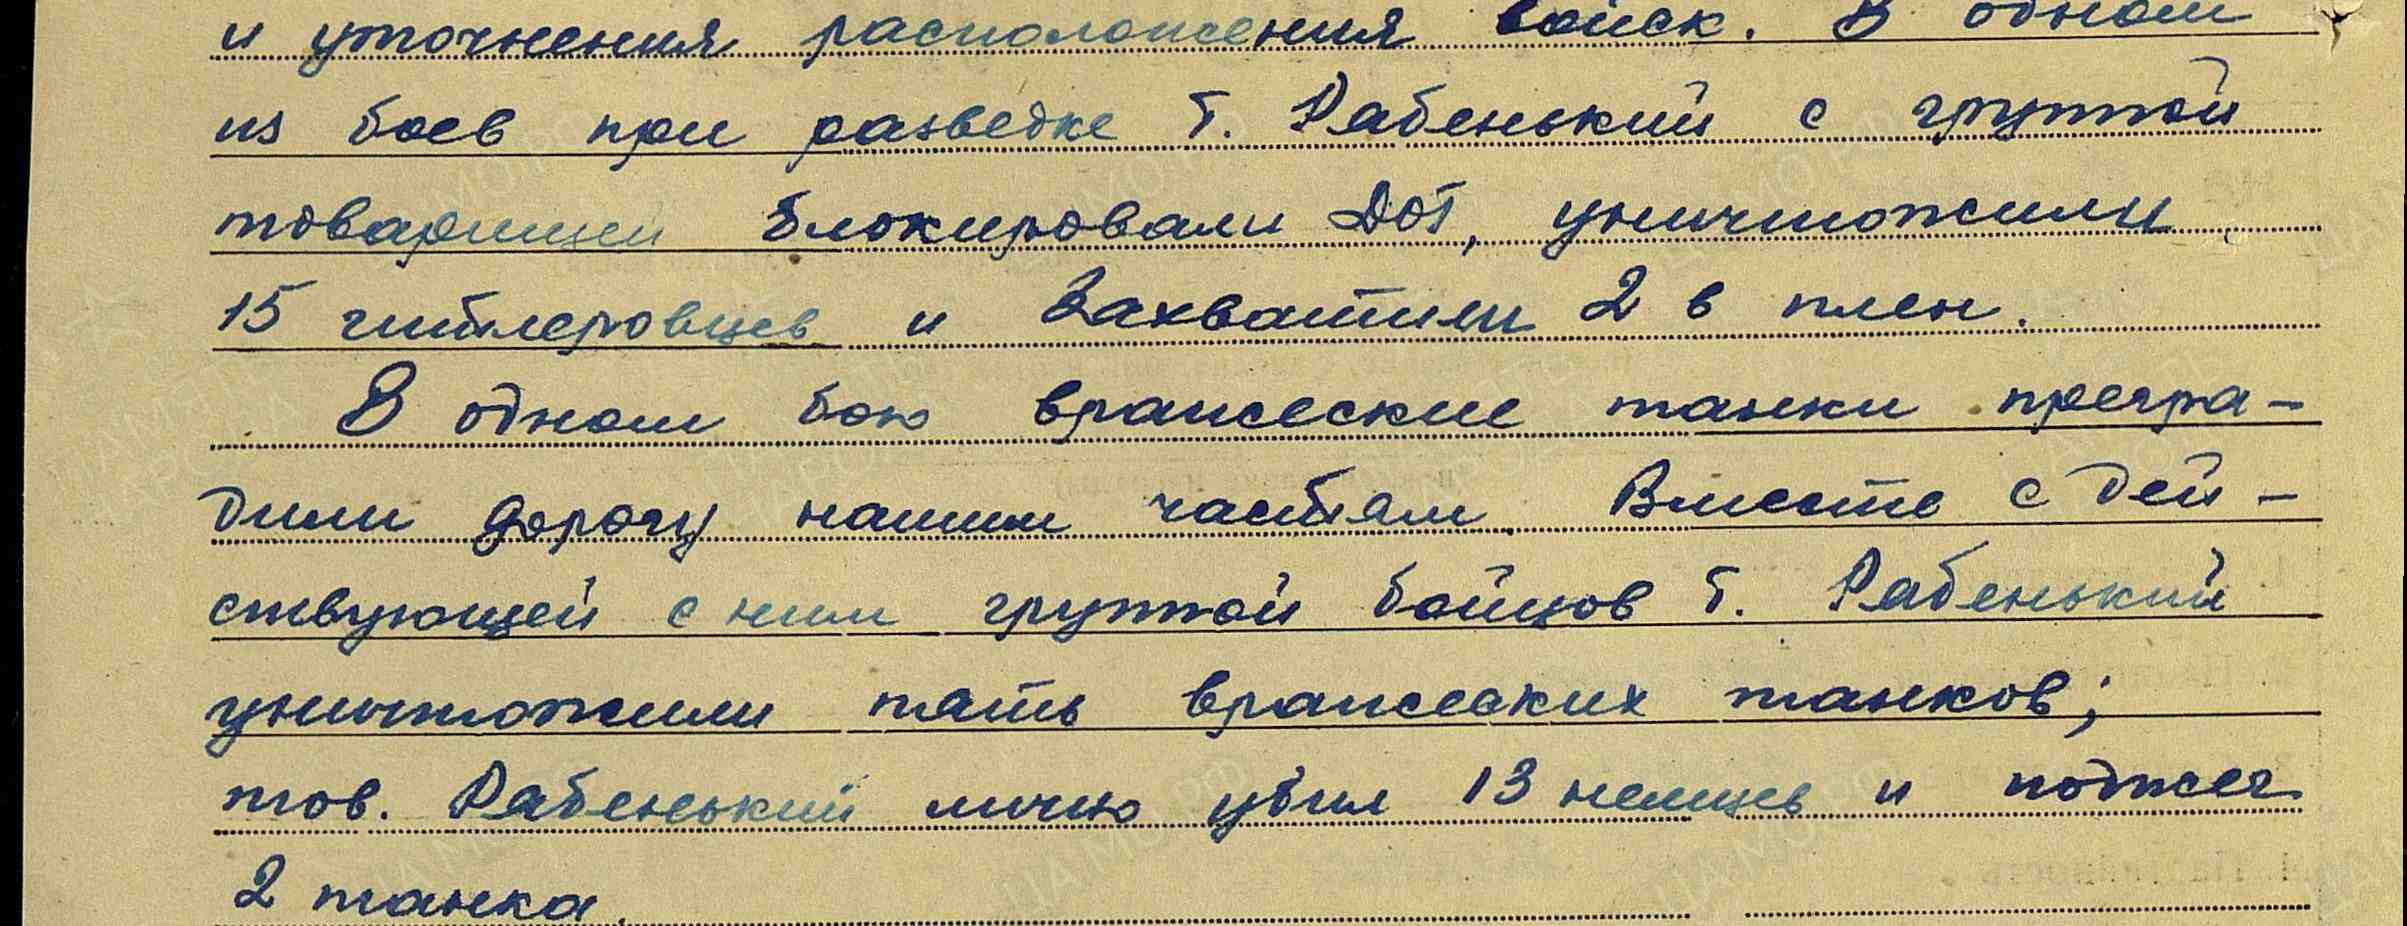 и уточнения расположения войск. В одном
из боев при разведке т. Рабенький с группой
товарищей блокировали ДОТ, уничтожили
15 гитлеровцев и захватили 2 в плен.
В одном бою вражеские танки прегра-
дили дорогу нашим частям. Вместе с дей-
ствующей с ним группой бойцов т. Рабенький
уничтожили пять вражеских танков;
тов. Рабенький лично убил 13 немцев и поджег
2 танка.